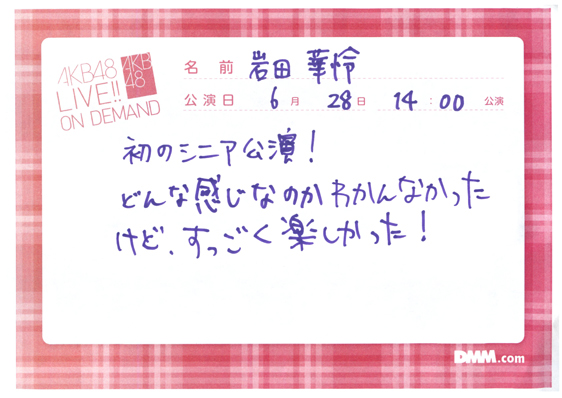 AKB48
LIVE!!
ON DEMAND
AKB
48
名前 岩田 華怜
公演日 6月 28日 14:00 公演
初のシニア公演!
どんな感じなのかわかんなかった
けど、すっごく楽しかった!
DMM.com